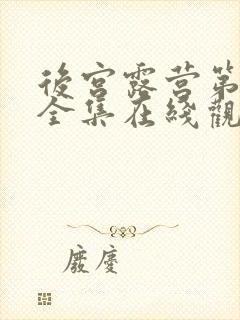 後宮露营第
全集在綫觀
廢慶